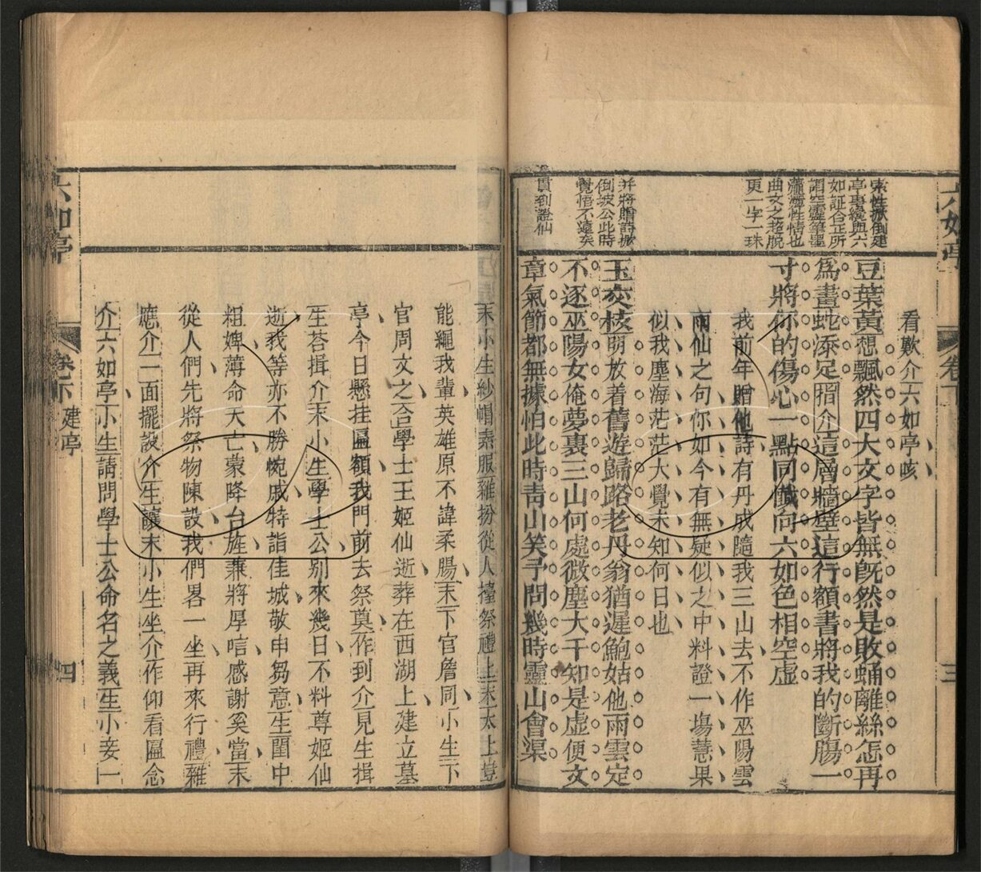 六如亭
卷下
三
宋性獄倒建
亭事纔與六
如証合正所
謂空靈筆墨
瀧澤性情也
曲文之超脫
更一字一珠
并將贈詩掀
倒坡公此時
覺悟不遠矣
貫到證仙
看歎介六如亭咳
豆葉黃想飄然四大文字皆無旣然是敗蛹離絲怎再
爲畫蛇添足摺介這層牆壁這行額書將我的斷腸一
寸將你的傷心一點同懺向六如色相空虛
我前年贈他詩有丹成隨我三山去不作巫陽雲
雨仙之句你如今有無疑似之中料證一塲慧果
似我塵海茫茫大覺未知何日也
玉交枝明放着舊遊歸路老丹翁猶遲鮑姑他雨雲定
不逐巫陽女俺夢裏三山何處微塵大千知是虛便文
章氣節都無據怕此時青山笑予問幾時靈山會渠
末小生紗帽素服雜扮從人擡祭禮上末太上豈
能繩我輩英雄原不諱柔腸末下官詹同小生下
官周文之合學士王姬仙逝葬在西湖上建立墓
亭今日懸挂匾額我門前去祭奠作到介見生揖
生荅揖介末小生學士公別來幾日不料尊姬仙
逝我等亦不勝惋戚特詣佳城敬申芻意生閨中
粗婢薄命天亡蒙降台旌兼將厚唁感謝奚當末
從人們先將祭物陳設我們畧一坐再來行禮雜
應介二面擺設介生讓末小生坐介作仰看匾念
介六如亭小生請問學士公命名之義生小妾一
六如亭
卷下
建亭
四